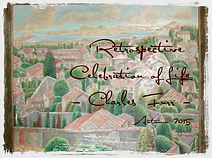 Retrospective
Celebration of Life
- Charles Furr -
Autumn 2015